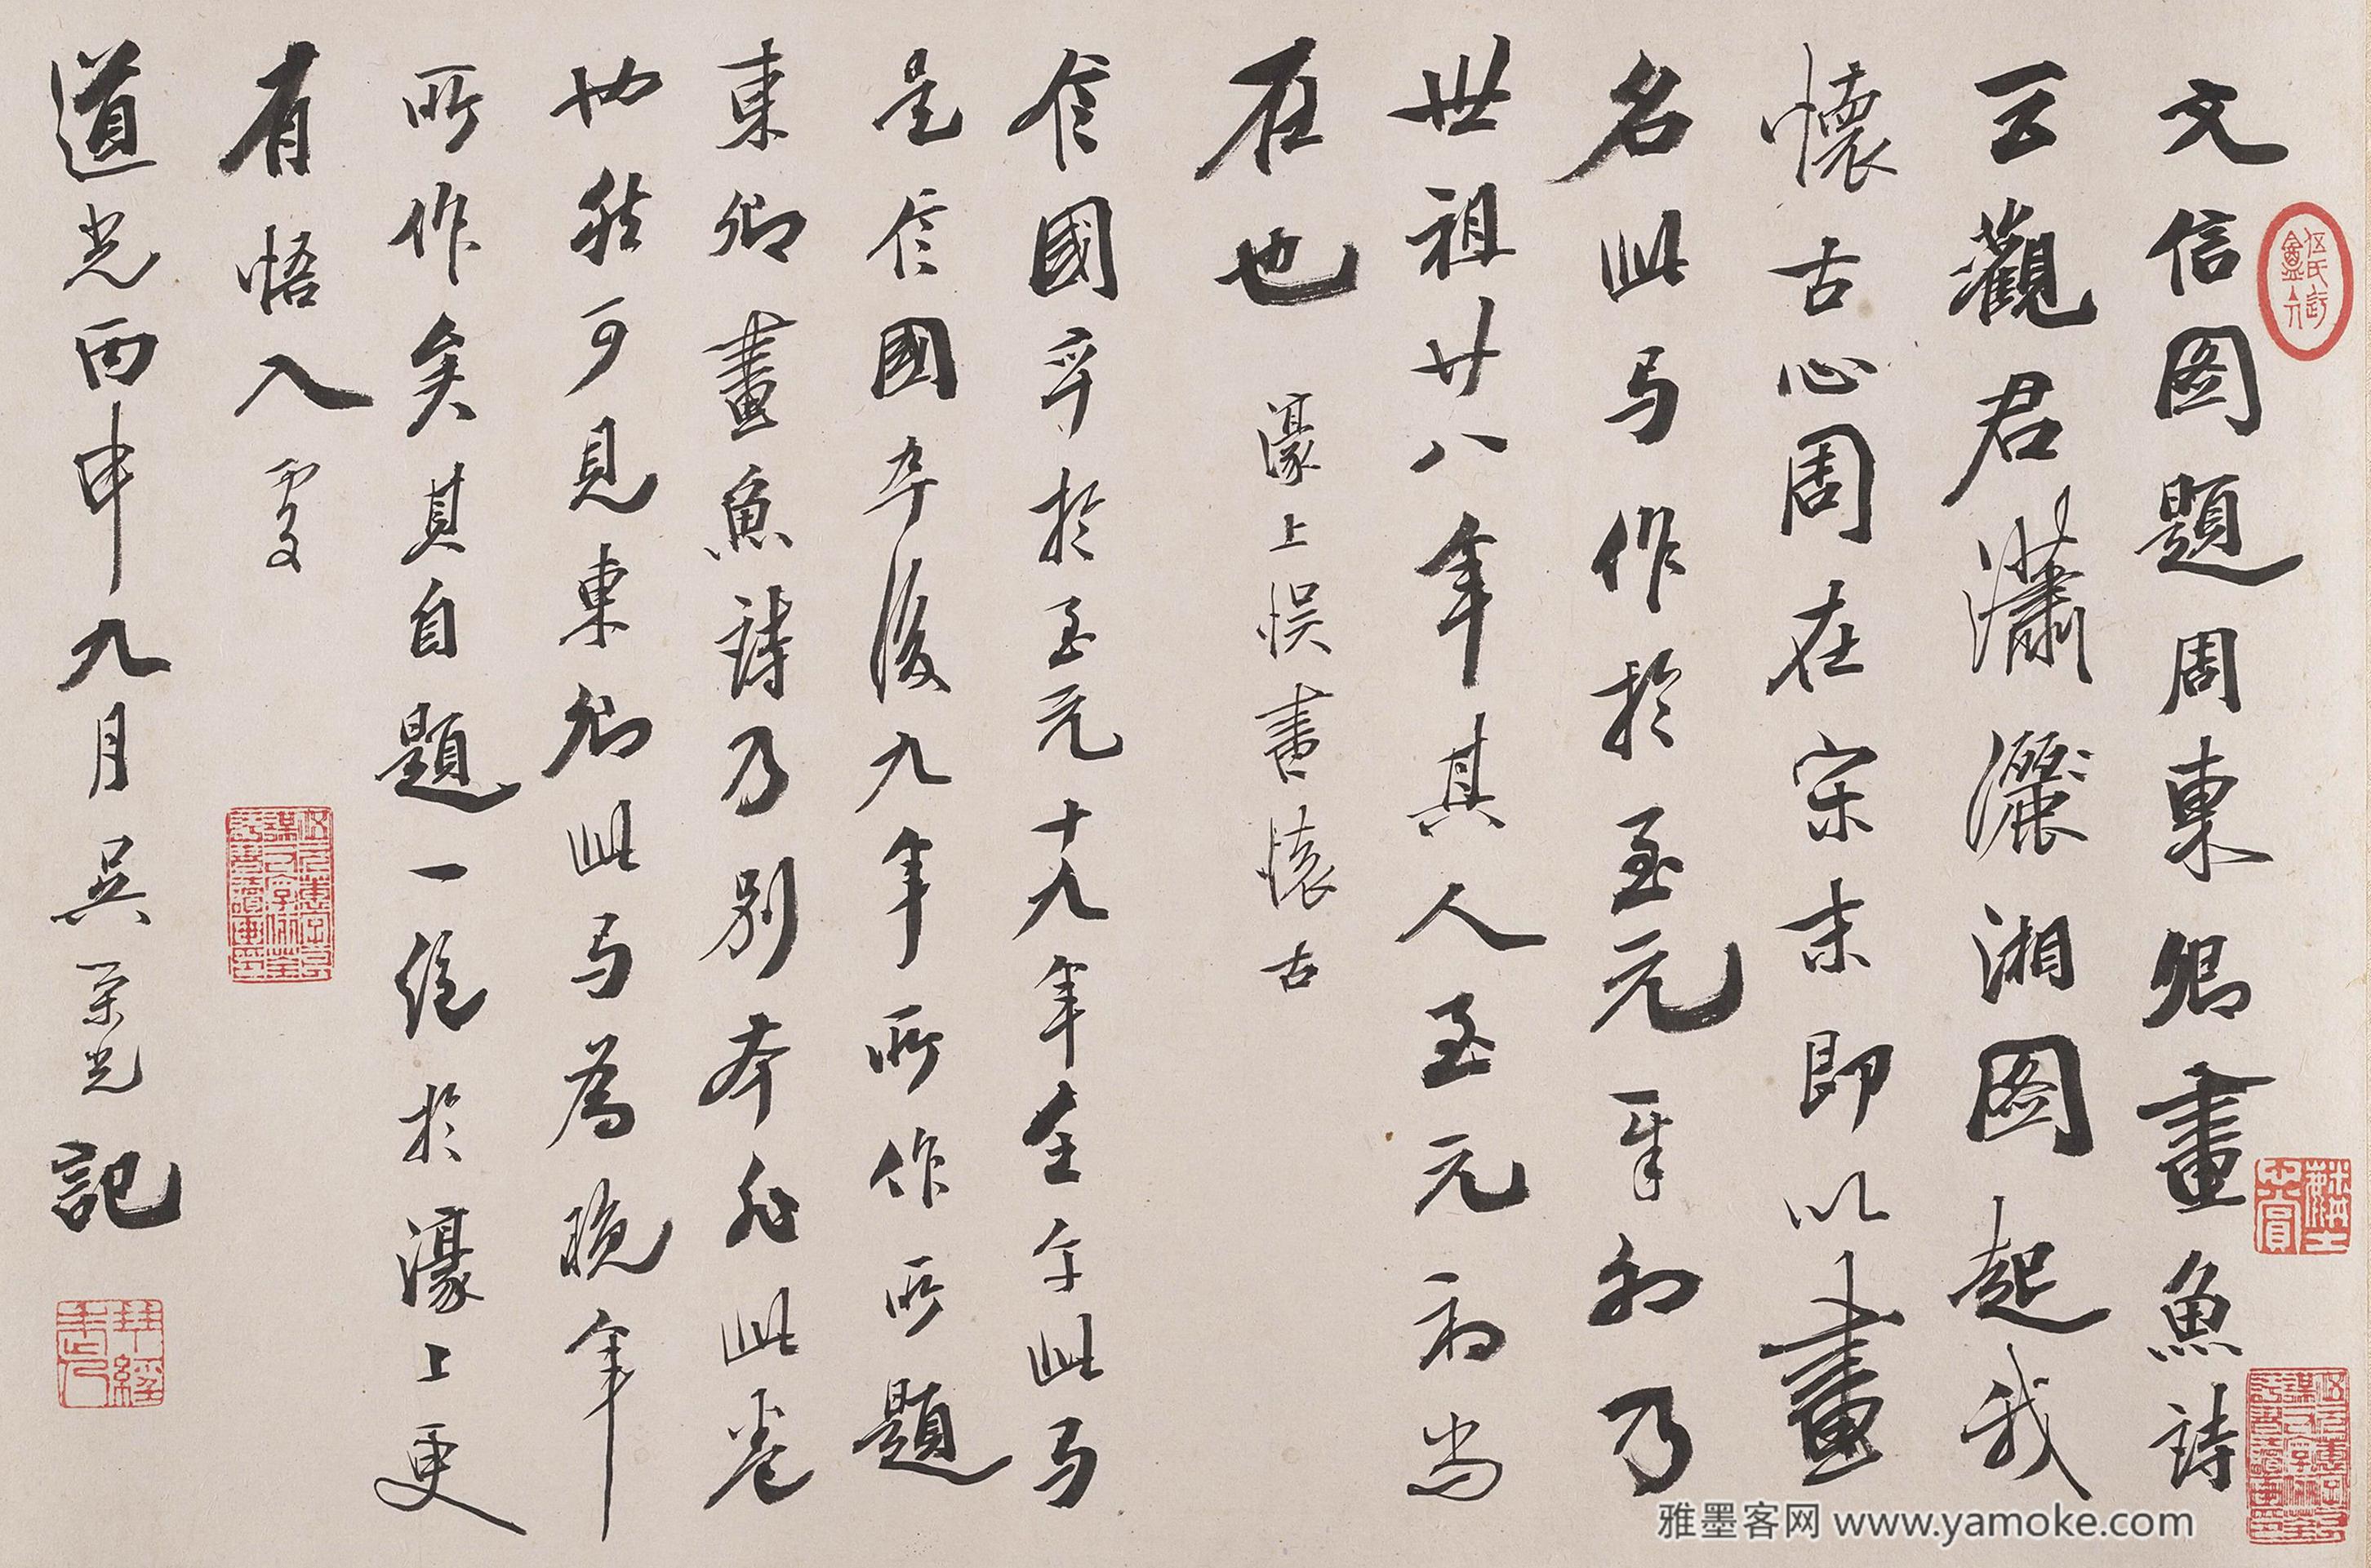 文信國題周東卿畫魚詩
云觀君瀟灑湘圖起我
懷古心周在宋末即以畫
名此写作於至元辛卯乃
世祖廿八年其人至元初尚
在也 濠上悮書懷古
信國卒於至元十九年壬午此写
是信國卒後九年所作所題
東卿畫魚詩乃別本非此卷
也然可見東卿此写為晚年
所作矣其自題一絕於濠上更
有悟入處
道光丙申九月吳榮光記
雅墨客网 www.yamoke.com